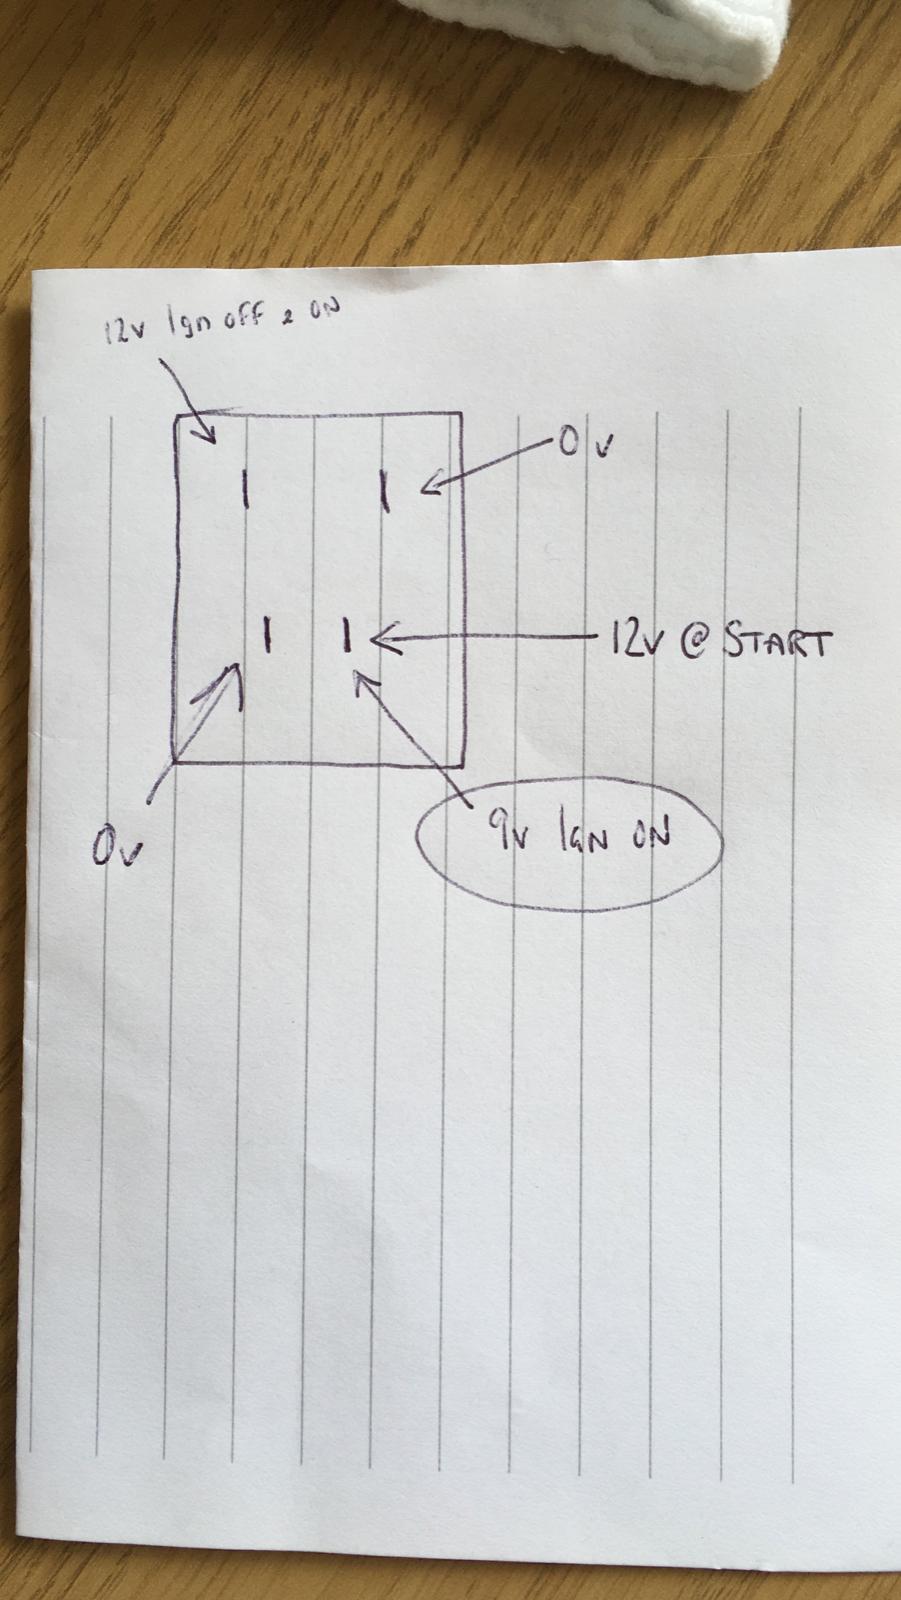 12v Ign off & ON
0v
12v @ START
0v
9v IGN ON